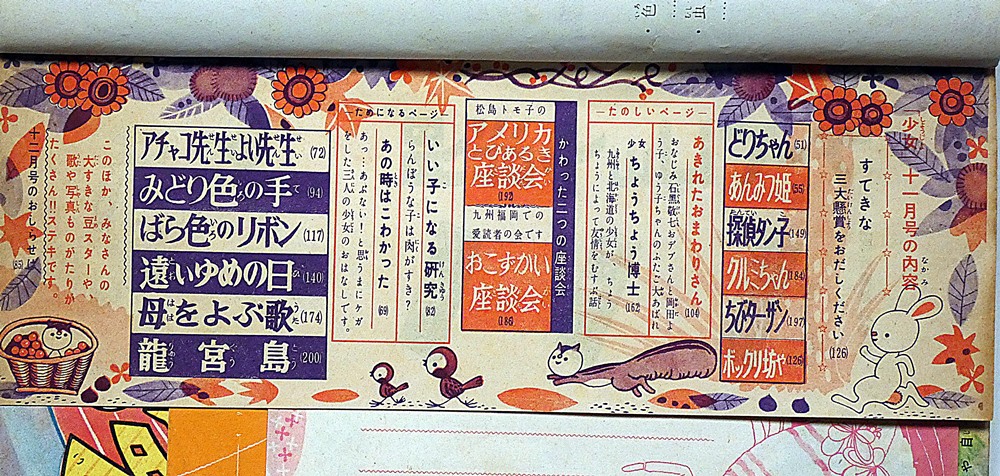 少女十一月号の内容
すてきな
三大懸賞をおだしください(126)
どりちゃん(51)
あんみつ姫(55)
探偵タン子(149)
クルミちゃん(184)
ちびターザン(197)
ポックリ坊や(126)
―たのしいページ―
あきれたおまわりさん(104)
おなじみ石黒敬七おデブさんと岡田よ
う子、ゆう子ちゃんのふたご大あばれ
少女 ちょうちょう博士(162)
九州と北海道の少女が、ちょう
ちょうによって友情をむすぶ話
かわった二つの座談会
松島トモ子の
アメリカ
とびあるき
座談会
(192)
九州福岡での
愛読者の会です
おこずかい
座談会
(186)
―ためになるページ―
いい子になる研究(82)
らんぼうな子は肉がすき?
あの時はこわかった(69)
あっ…あぶない!と思うまにケガ
をした三人の少女のおはなしです。
アチャコ先生よい先生(72)
みどり色の手(94)
ばら色のリボン(117)
遠いゆめの日(140)
母をよぶ歌(174)
龍宮島(200)
このほか、みなさんの
大すきな豆スターや、
歌や写真ものがたりが
たくさん!!ステキです。
十二月号のおしらせは(85)